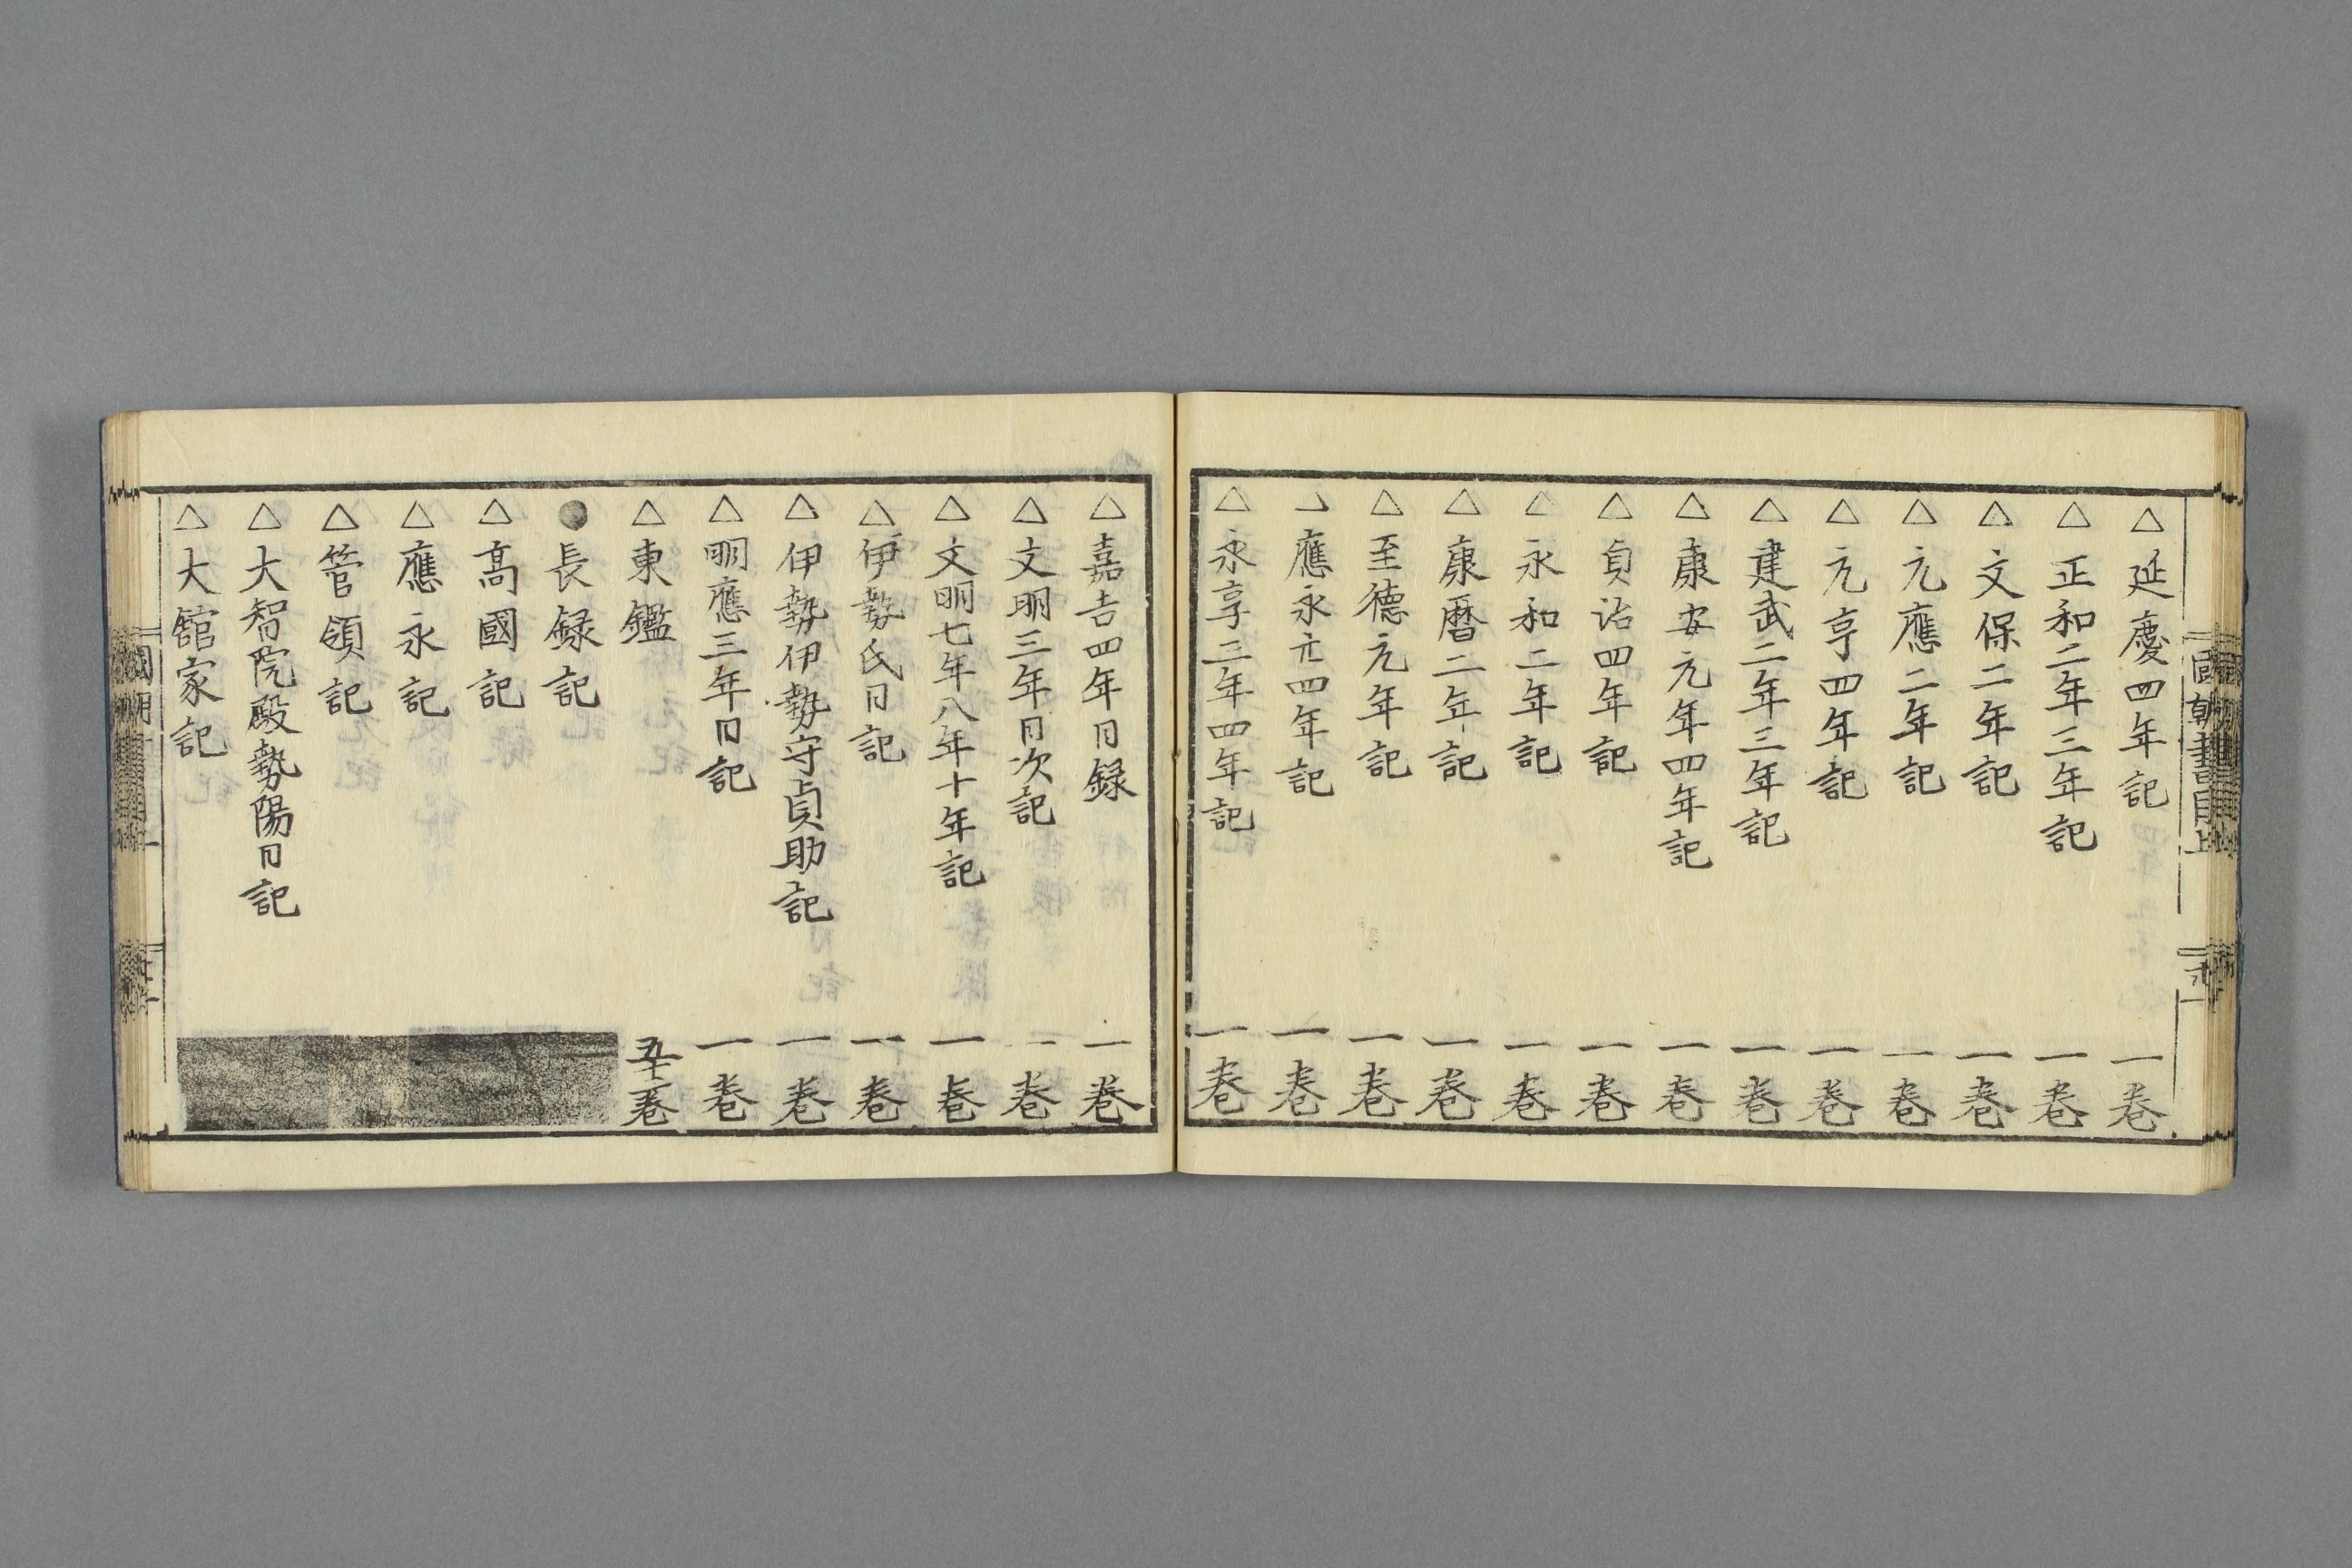 △延慶四年記 一巻
△正和二年三年記 一巻
△文保二年記 一巻
△元應二年記 一巻
△元亨四年記 一巻
△建武二年三年記 一巻
△康安元年四年記 一巻
△貞治四年記 一巻
△永和二年記 一巻
△康暦二年記 一巻
△至德元年記 一巻
應永廿四年記 一巻
△永享三年四年記 一巻
△嘉吉四年日録 一巻
△文明三年日次記 一巻
△文明七年八年十年記 一巻
△伊勢氏日記 一巻
△伊勢伊勢守貞助記 一巻
△明應三年日記 一巻
△東鑑 五十二巻
●長録記
△髙國記
△應永記
△管領記
△大智院殿勢陽日記
△大舘家記
國朝書目上